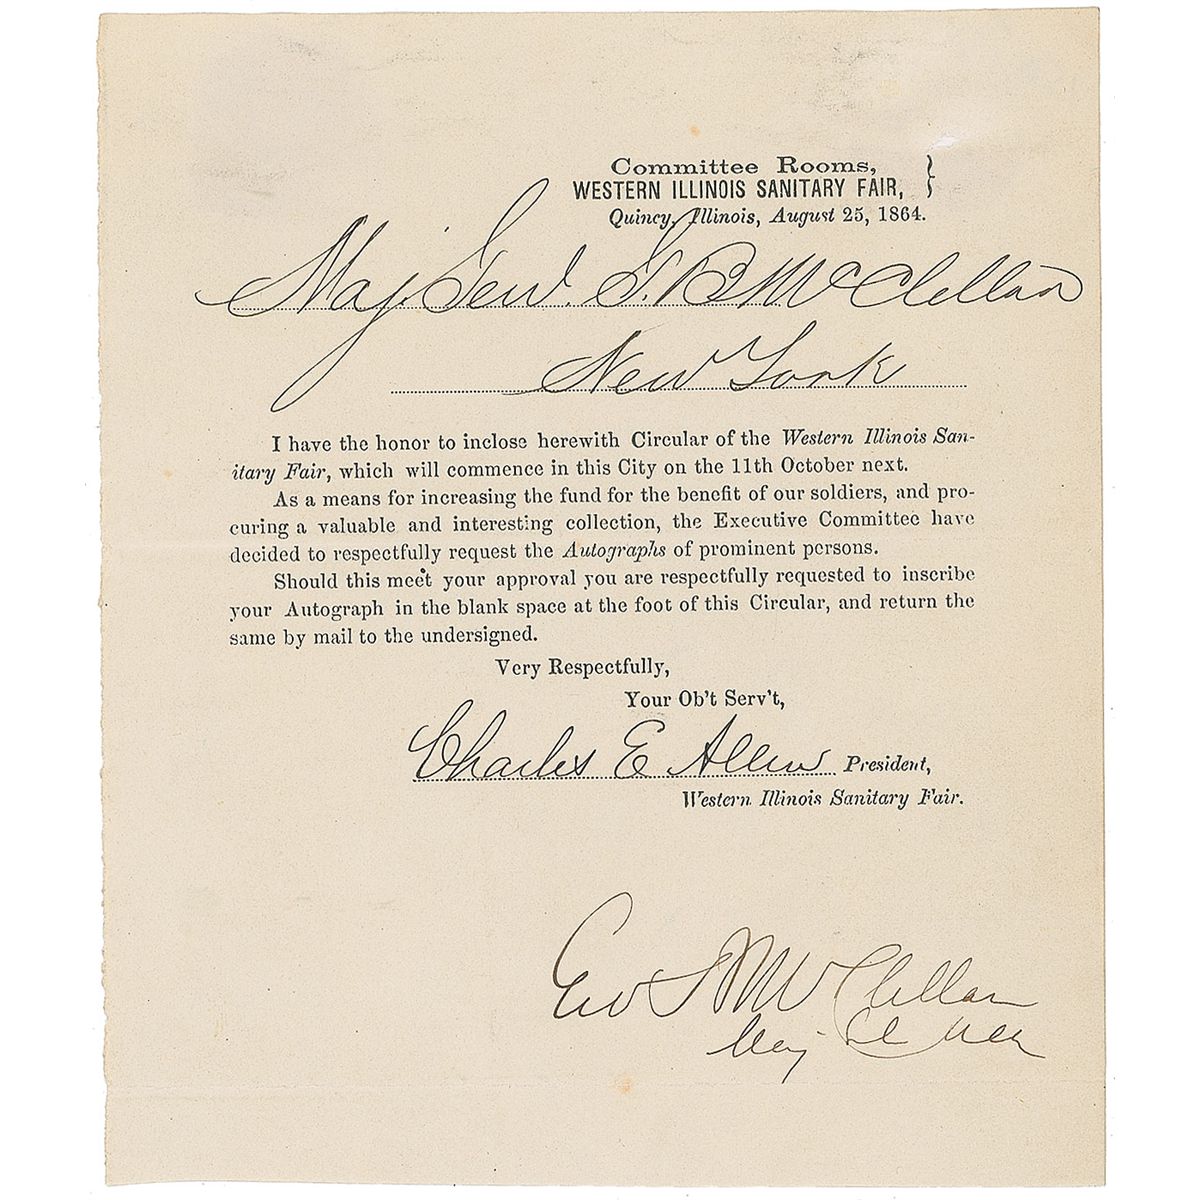 Committee Rooms,
WESTERN ILLINOIS SANITARY FAIR, }
Quincy, Illinois, August 25, 1864.
Maj. Genl. G. B McClellan
New York
I have the honor to inclose herewith Circular of the Western Illinois San-
itary Fair, which will commence in this City on the 11th October next.
As a means for increasing the fund for the benefit of our soldiers, and pro-
curing a valuable and interesting collection, the Executive Committee have
decided to respectfully request the Autographs of prominent persons.
Should this meet your approval you are respectfully requested to inscribe
your Autograph in the blank space at the foot of this Circular, and return the
same by mail to the undersigned.
Very Respectfully,
Your Ob't Serv't,
Charles E Allen President,
Western Illinois Sanitary Fair.
Geo B McClellan
Maj Gl USA